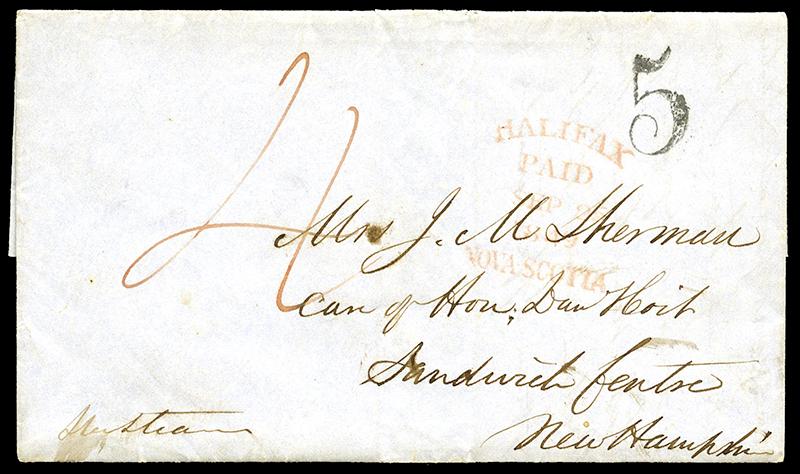 5
HALIFAX
PAID
NOVA SCOTIA
4
Mrs J. M. Sherman
care of Hon. Dan Hoit
Sandwich Centre
New Hampshire